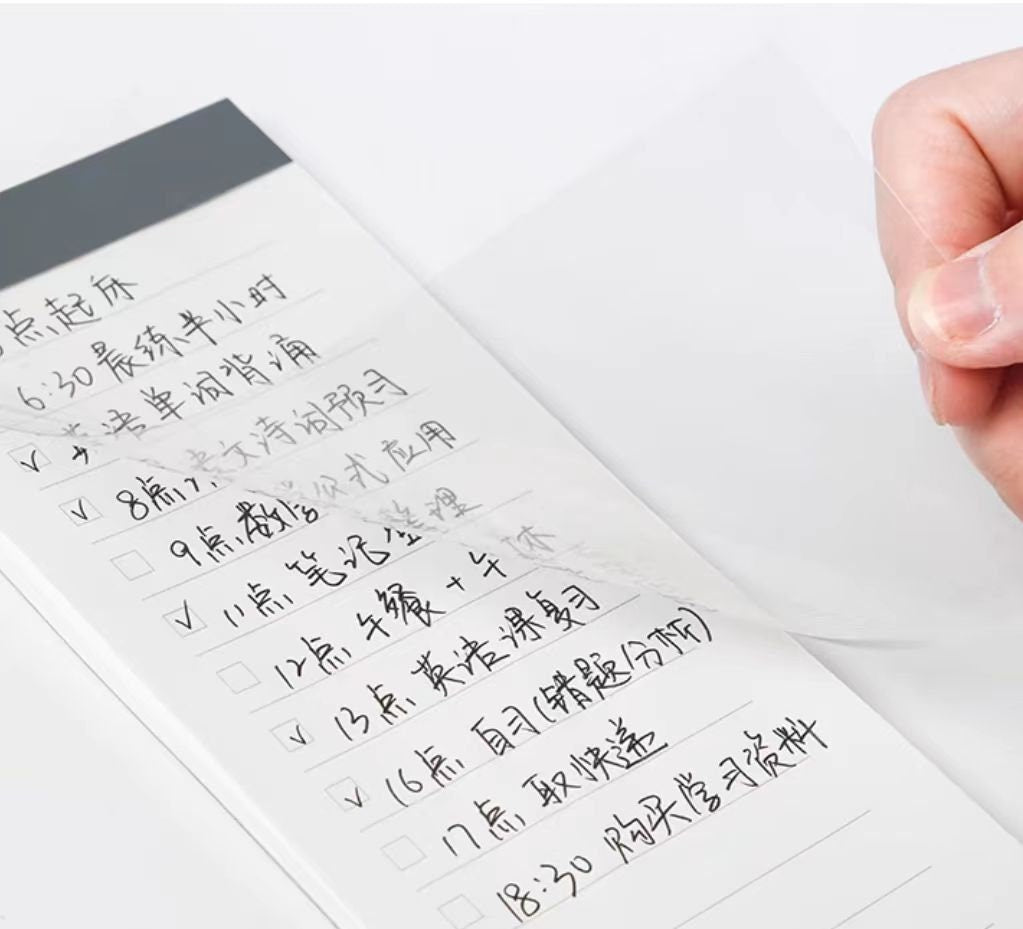 点起床
6:30 晨练半小时
英语单词背诵
8点 语文诗词预习
9点 数学公式应用
11点 笔记整理
12点 午餐+午休
13点 英语课复习
16点 自习(错题/分析)
17点 取快递
18:30 购买学习资料